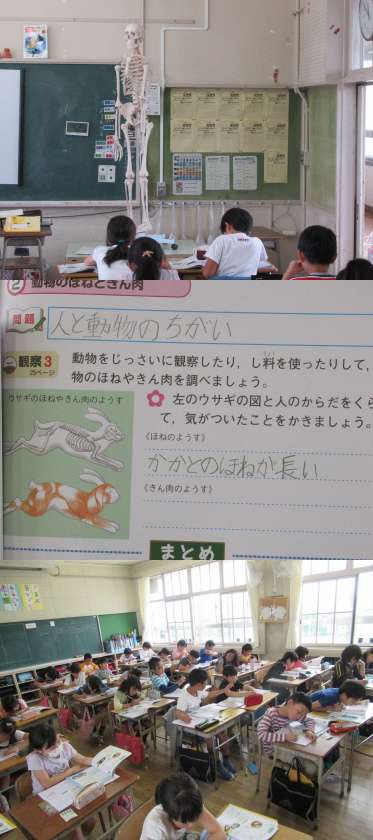 ② 動物のほねときん肉
問題
人と動物のちがい
観察3
25ページ
動物をじっさいに観察したり，し料を使ったりして，
物のほねやきん肉を調べましょう。
ウサギのほねやきん肉のようす
左のウサギの図と人のからだをくら
て，気がついたことをかきましょう。
《ほねのようす》
かかとのほねが長い
《きん肉のようす》
まとめ